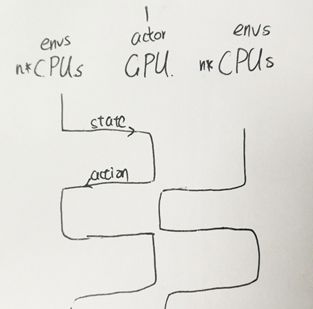 envs actor envs
n*CPUs GPU. n*CPUs
state
action